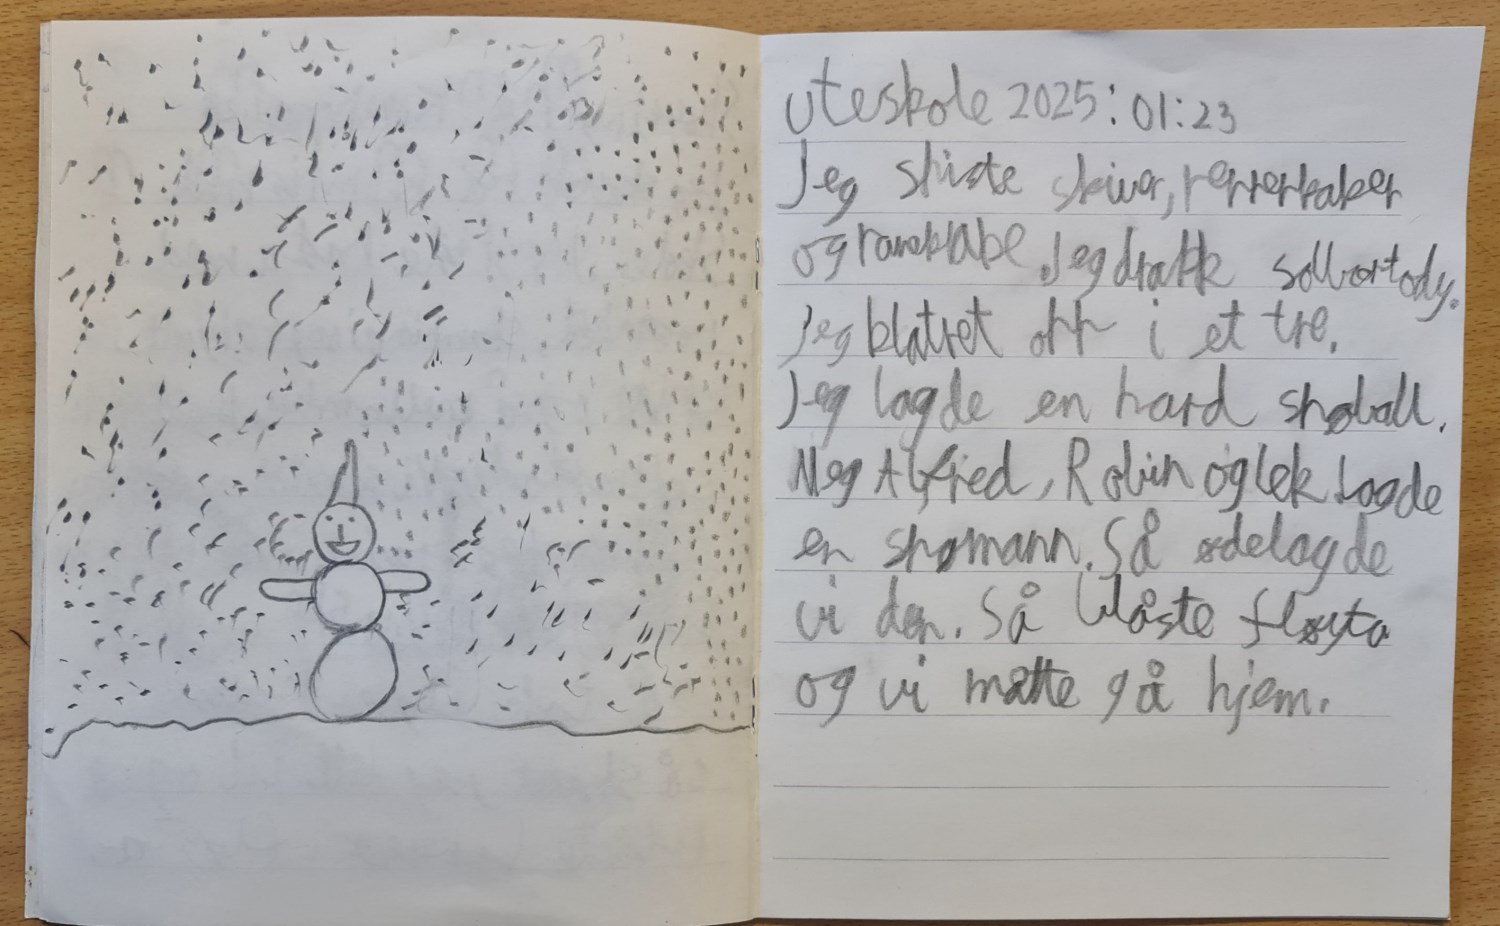 uteskole 2025:01:23
Jeg skiste skiver, pepperkaker
og Jeg drakk sollbortody.
Jeg klatret opp i et tre.
Jeg lagde en hard snøball.
Meg Alfred, Robin og lek lagde
en snømann. Så ødelagde
vi den. Så blåste fløyta
og vi måtte gå hjem.